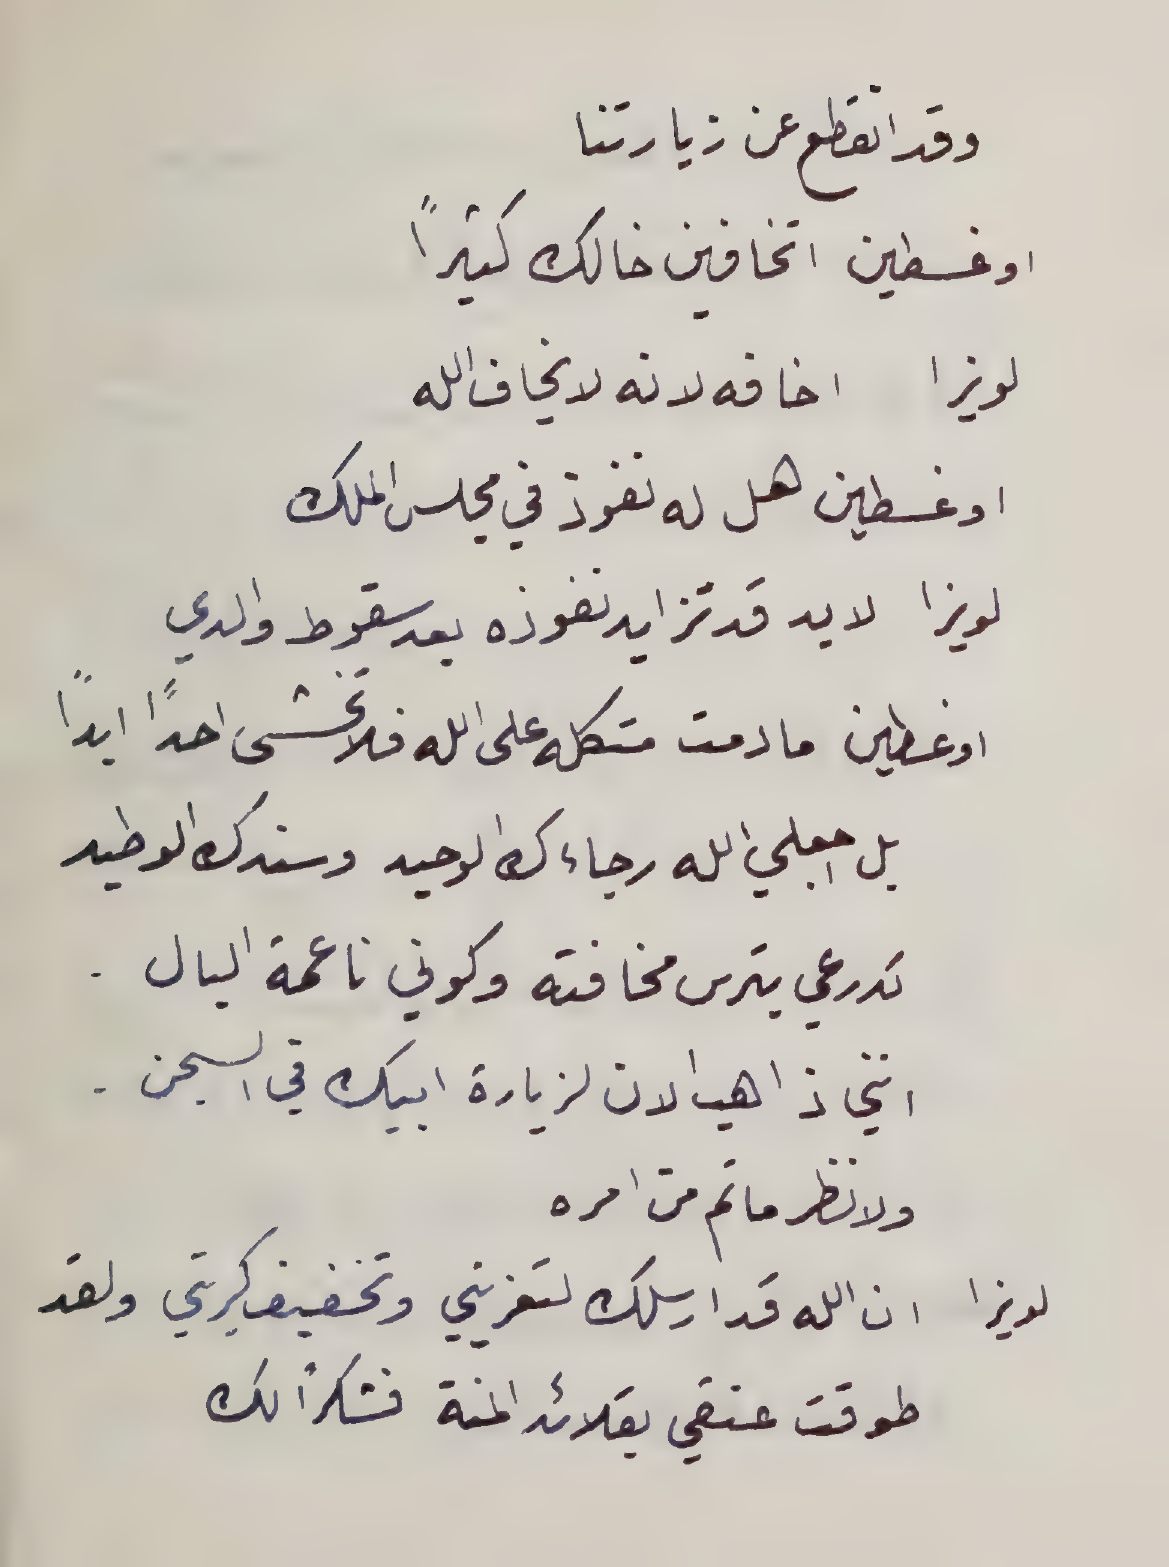 وقد انقطع عن زيارتنا
اوغسطين اتخافين خالك كثيراً
لويزا اخافه لانه لا يخاف الله
اوغسطين هل له نفوذ في مجلس الملك
لويزا لابد قد تزايد نفوذه بعد سقوط والدي
اوغسطين ما دمت متكله على الله فلا تخشى احداً ابداً
بل اجعلي الله رجاءك الوحيد وسندك الوطيد
تدرعي بترس مخافته وكوني ناعمة البال .
انني ذاهب الان لزيارة ابيك في السجن .
ولانظر ما تم من امره
لويزا ان الله قد ارسلك لتعزيتي وتخفيف كربتي ولقد
طوقت عنقي بقلائد المنة فشكراً لك